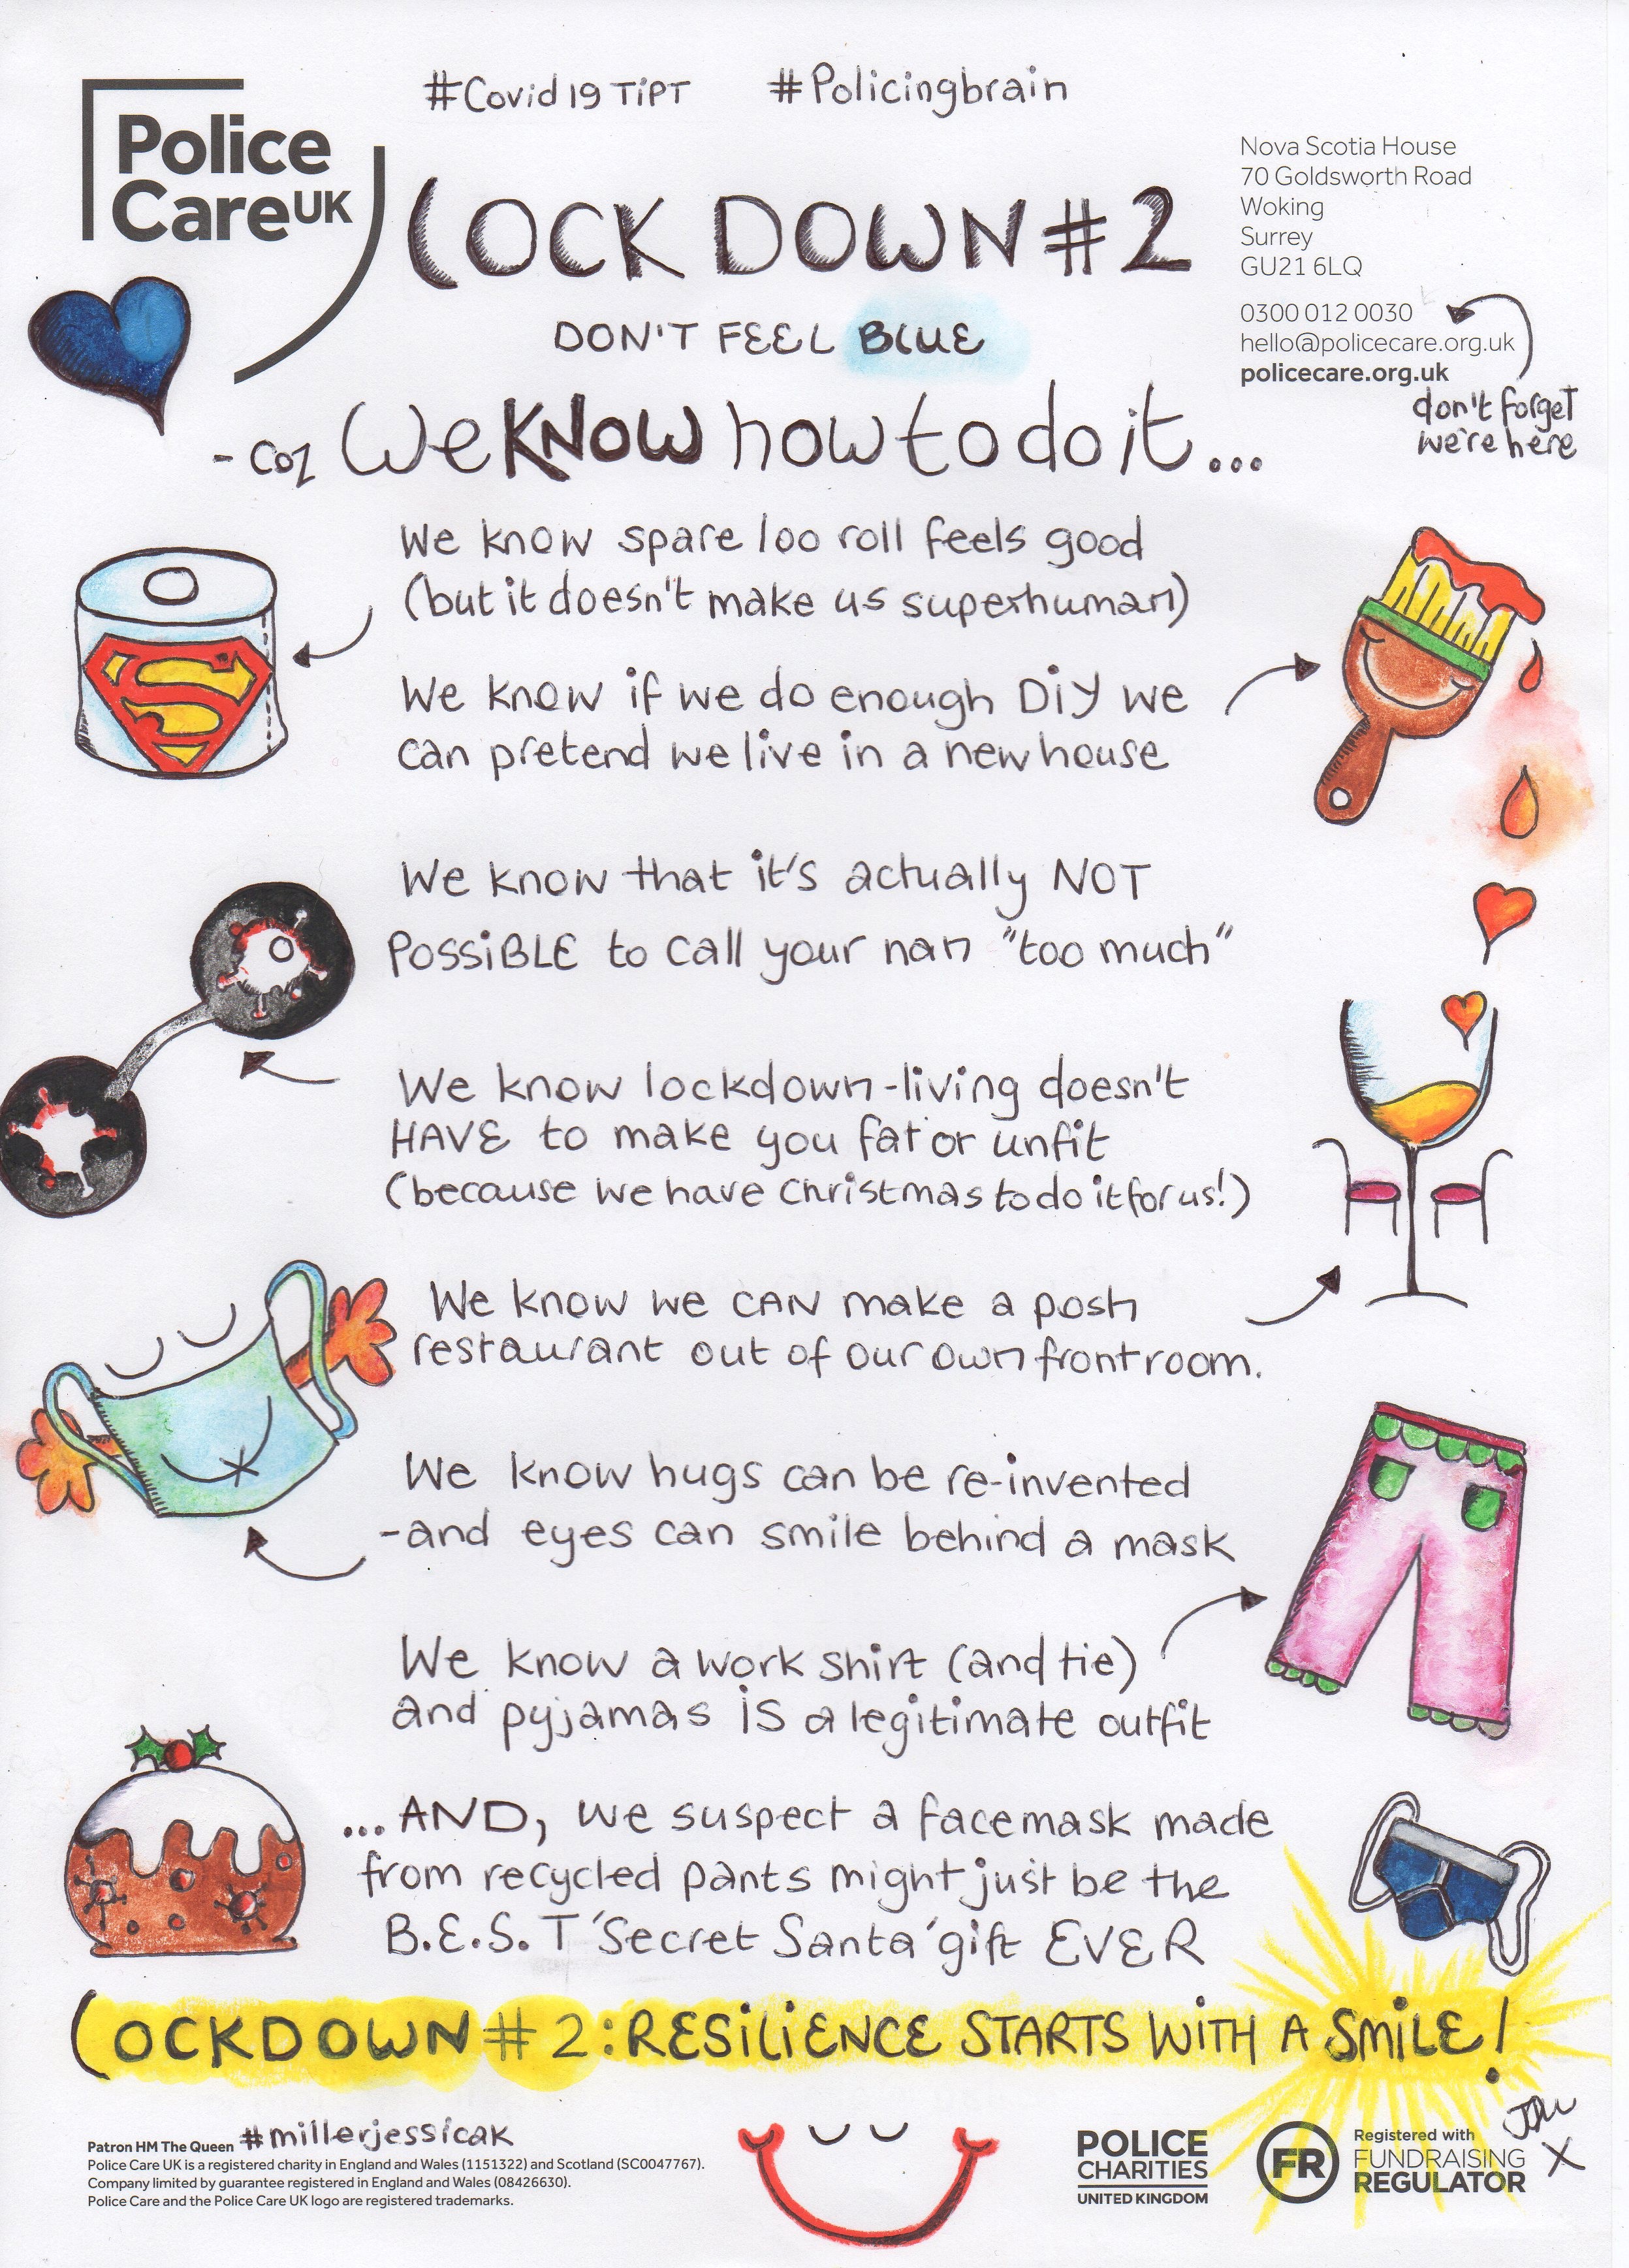 #Covid19TiPT #Policingbrain
Police
CareUK
Nova Scotia House
70 Goldsworth Road
Woking
Surrey
GU21 6LQ
0300 012 0030
hello@policecare.org.uk
policecare.org.uk
don't forget
we're here
LOCK DOWN #2
DON'T FEEL BLUE
- coz We KNOW how to do it...
We know spare loo roll feels good
(but it doesn't make us superhuman)
We know if we do enough DiY we
can pretend we live in a new house
We know that it's actually NOT
POSSiBLE to call your nan "too much"
We know lockdown-living doesn't
HAVE to make you fat or unfit
(because we have Christmas to do it for us!)
We know we CAN make a posh
restaurant out of our own front room.
We know hugs can be re-invented
-and eyes can smile behind a mask
We know a work shirt (and tie)
and pyjamas iS a legitimate outfit
...AND, we suspect a facemask made
from recycled pants might just be the
B.E.S.T 'Secret Santa' gift EVER
LOCKDOWN #2: RESiLiENCE STARTS WiTH A SMiLE!
Patron HM The Queen #millerjessicak
Police Care UK is a registered charity in England and Wales (1151322) and Scotland (SC0047767).
Company limited by guarantee registered in England and Wales (08426630).
Police Care and the Police Care UK logo are registered trademarks.
POLICE
CHARITIES
UNITED KINGDOM
FR
Registered with
FUNDRAISING
REGULATOR
X